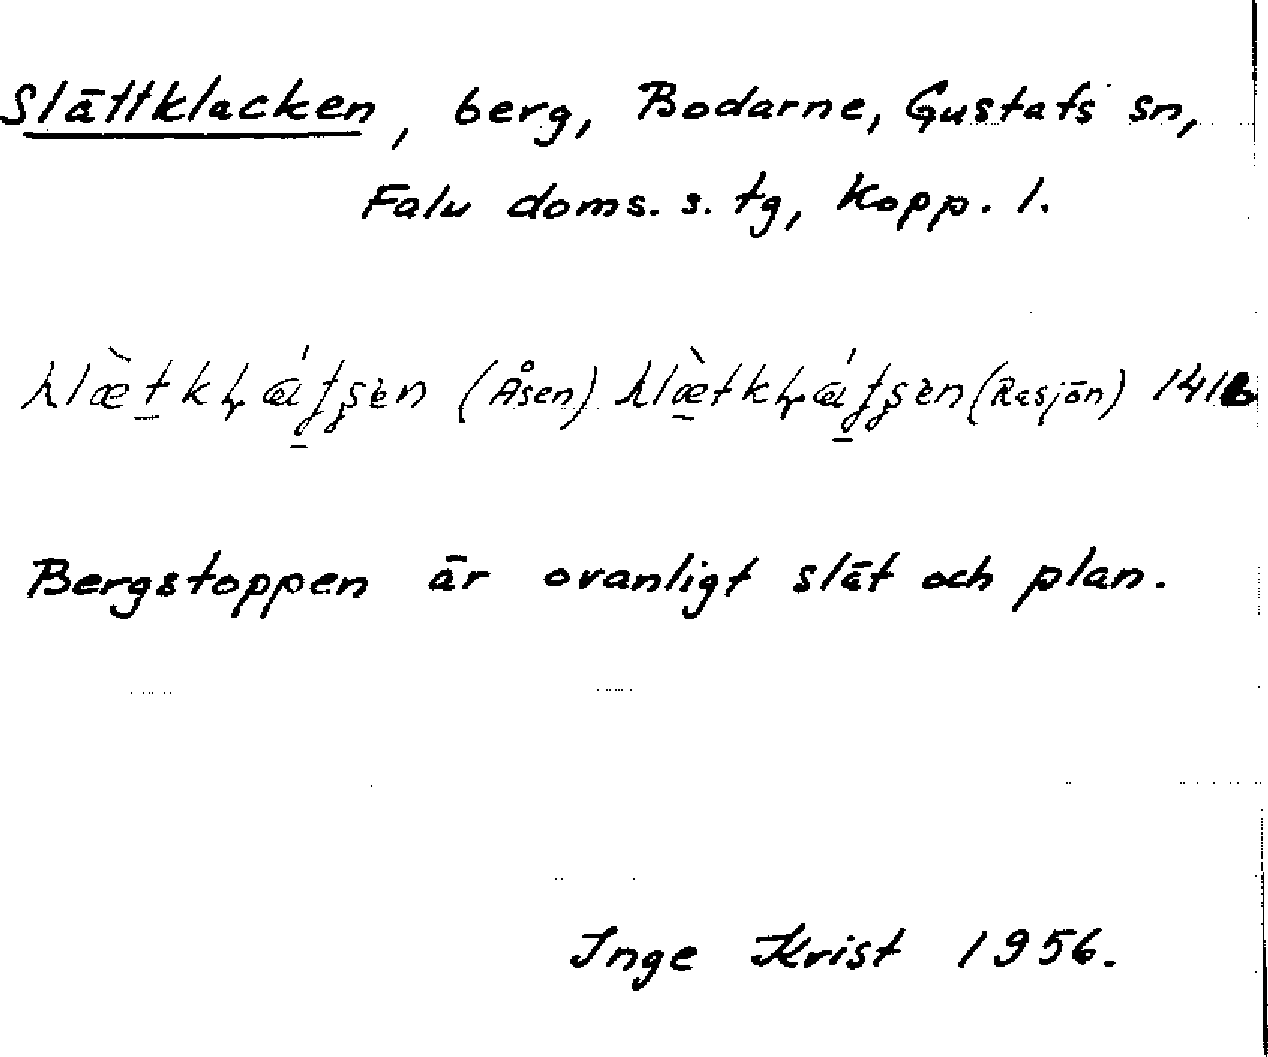 Slättklacken, berg, Bodarne, Gustafs sn,
Falu doms. s. tg, Kopp. l.
(Åsen) (Rasjön)
Bergstoppen är ovanligt slät och plan.
Inge Krist 1956.